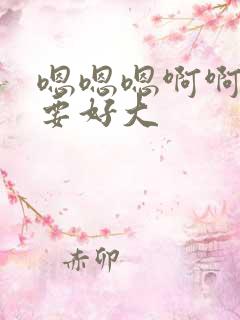 嗯嗯嗯啊啊
要好大
赤卯